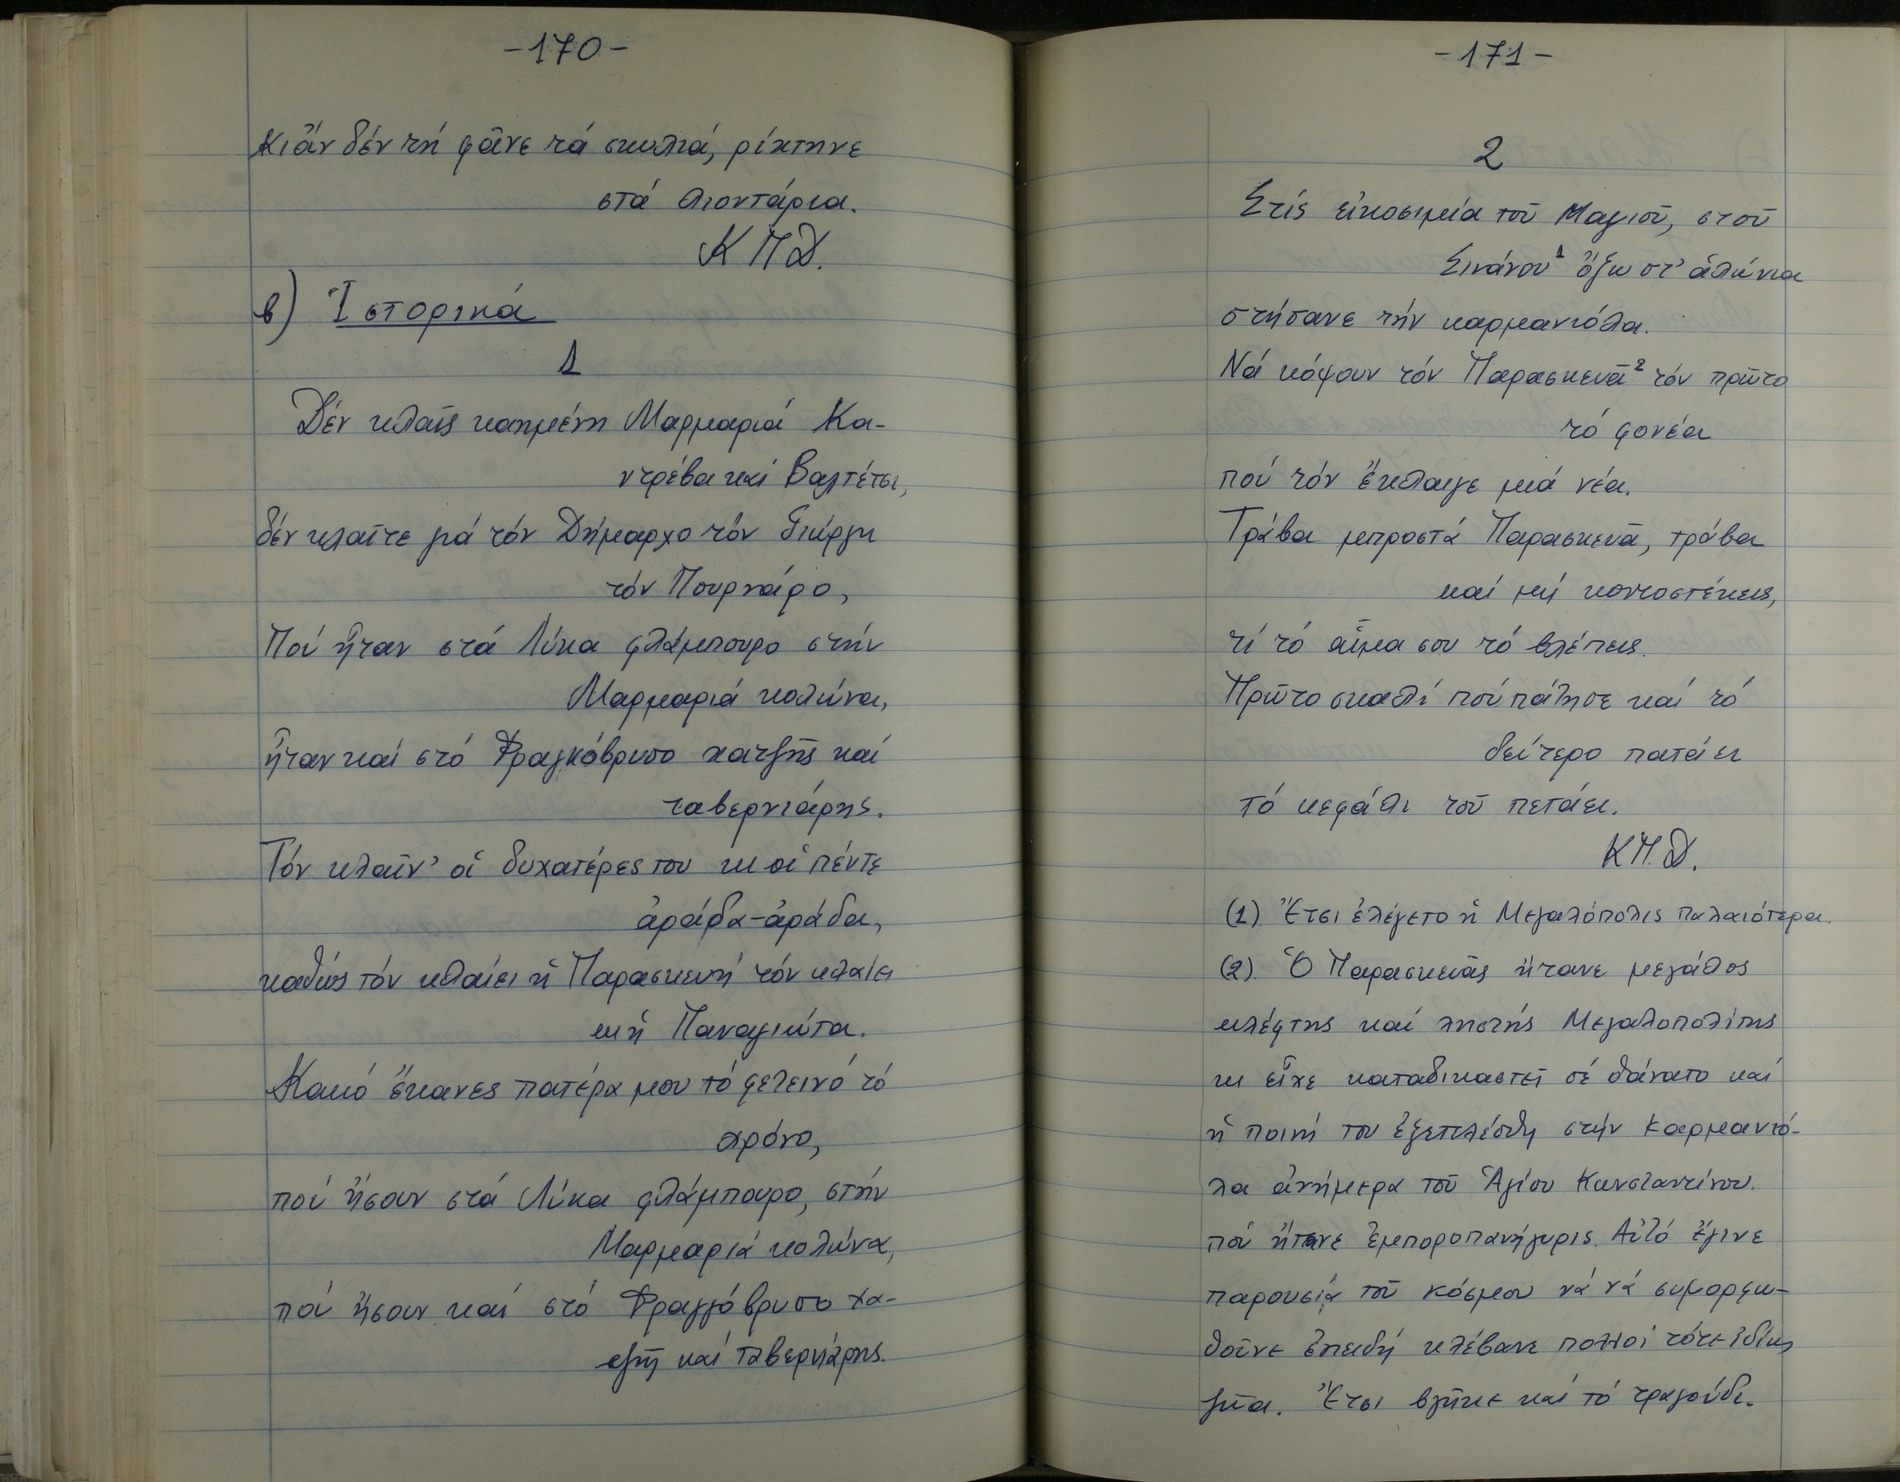 -170-
κι ἄν δέν τή φᾶνε τά σκυλιά, ρίχτηνε
στά λιοντάρια.
Κ Π Δ.
β) Ἱστορικά
1
Δέν κλαῖς καημένη Μαρμαριά Κα-
ντρέβα καί Βαλτέτσι,
δέν κλαῖτε γιά τόν Δήμαρχο τόν Γιώργη
τόν Πουρνάρο,
Πού ἦταν στά Λύκα φλάμπουρο στήν
Μαρμαριά κολώνα,
ἦταν καί στό Φραγκόβρυσο χατζῆς καί
ταβερνιάρης.
Τόν κλαῖν' οἱ δυχατέρες του κι οἱ πέντε
ἀράδα-ἀράδα,
καθώς τόν κλαίει ἡ Παρασκευή τόν κλαίει
κι ἡ Παναγιώτα.
Κακό ἔκανες πατέρα μου τό φετεινό τό
χρόνο,
πού ἤσουν στά Λύκα φλάμπουρο, στήν
Μαρμαριά κολώνα,
πού ἤσουν καί στό Φραγγόβρυσο χα-
τζῆ καί ταβερνιάρης.
-171-
2
Στίς εἰκοσιμία τοῦ Μαγιοῦ, στοῦ
Σινάνου¹ ὄξω στ' ἁλώνια
στήσανε τήν καρμανιόλα.
Νά κόψουν τόν Παρασκευᾶ² τόν πρῶτο
τό φονέα
πού τόν ἔκλαιγε μιά νέα.
Τράβα μπροστά Παρασκευᾶ, τράβα
καί μή κοντοστέκεις,
τί τό αἷμα σου τό βλέπεις.
Πρῶτο σκαλί πού πάτησε καί τό
δεύτερο πατάει
τό κεφάλι τοῦ πετάει.
Κ Π. Δ.
(1). Ἔτσι ἐλέγετο ἡ Μεγαλόπολις παλαιότερα.
(2). Ὁ Παρασκευᾶς ἤτανε μεγάλος
κλέφτης καί ληστής Μεγαλοπολίτης
κι εἶχε καταδικαστεῖ σέ θάνατο καί
ἡ ποινή του ἐξετελέσθη στήν καρμανιό-
λα ἀνήμερα τοῦ Ἁγίου Κωνσταντίνου.
πού ἤτανε ἐμποροπανήγυρις. Αὐτό ἔγινε
παρουσία τοῦ κόσμου νά νά συμορφω-
θοῦνε ἐπειδή κλέβανε πολλοί τότε ἰδίως
ζῶα. Ἔτσι βγῆκε καί τό τραγούδι.